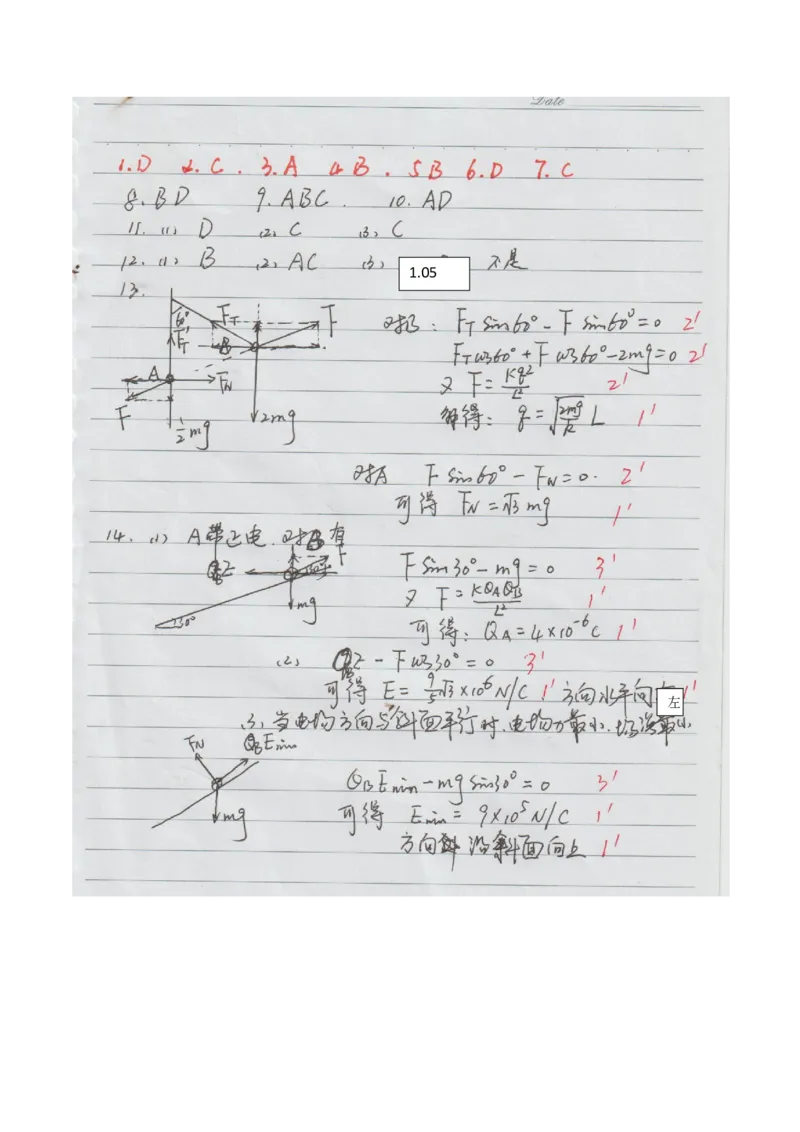 Date
1.D 2.C. 3.A 4B. 5B 6.D 7.C
8.BD 9.ABC. 10.AD
11.(1) D (2) C (3) C
12.(1) B (2) AC (3) 1.05 不是
13.
60° F_T F
F_T' B
A F_N
F ½mg 2mg
对B: F_T sin60° - F sin60° = 0 2'
F_T cos60° + F cos60° - 2mg = 0 2'
又 F = Kq²/L² 2'
解得: q = √(2mg/k) L 1'
对A F sin60° - F_N = 0. 2'
可得 F_N = √3 mg 1'
14.(1) A带正电. 对B有
Q_BE F
mg
30°
F sin30° - mg = 0 3'
又 F = KQ_AQ_B/L² 1'
可得: Q_A = 4×10⁻⁶C 1'
(2) Q_BE - F cos30° = 0 3'
可得 E = 9/5 √3×10⁶ N/C 1' 方向水平向左 1'
(3) 当电场方向与斜面平行时,电场力最小.场强最小
F_N Q_BEmin
mg
Q_BEmin - mg sin30° = 0 3'
可得 Emin = 9×10⁵ N/C 1'
方向沿斜面向上 1'